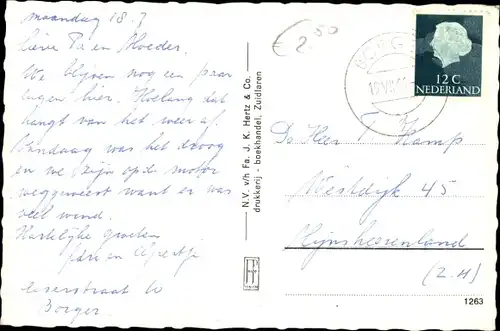 maandag 18.7
Lieve Pa en Moeder.
We blijven nog een paar
dagen hier. Hoelang dat
hangt van het weer af.
Vandaag was het droog
en we zijn op de motor
weggeweest want er was
veel wind.
Hartelijke groeten
Adri en
Borger
€ 2.50
N.V. v/h Fa. J. K. Hertz & Co.
drukkerij - boekhandel, Zuidlaren
12 C
NEDERLAND
De Heer T Kamp
Westdijk 45
Mijnsheerenland
(Z.H)
1263